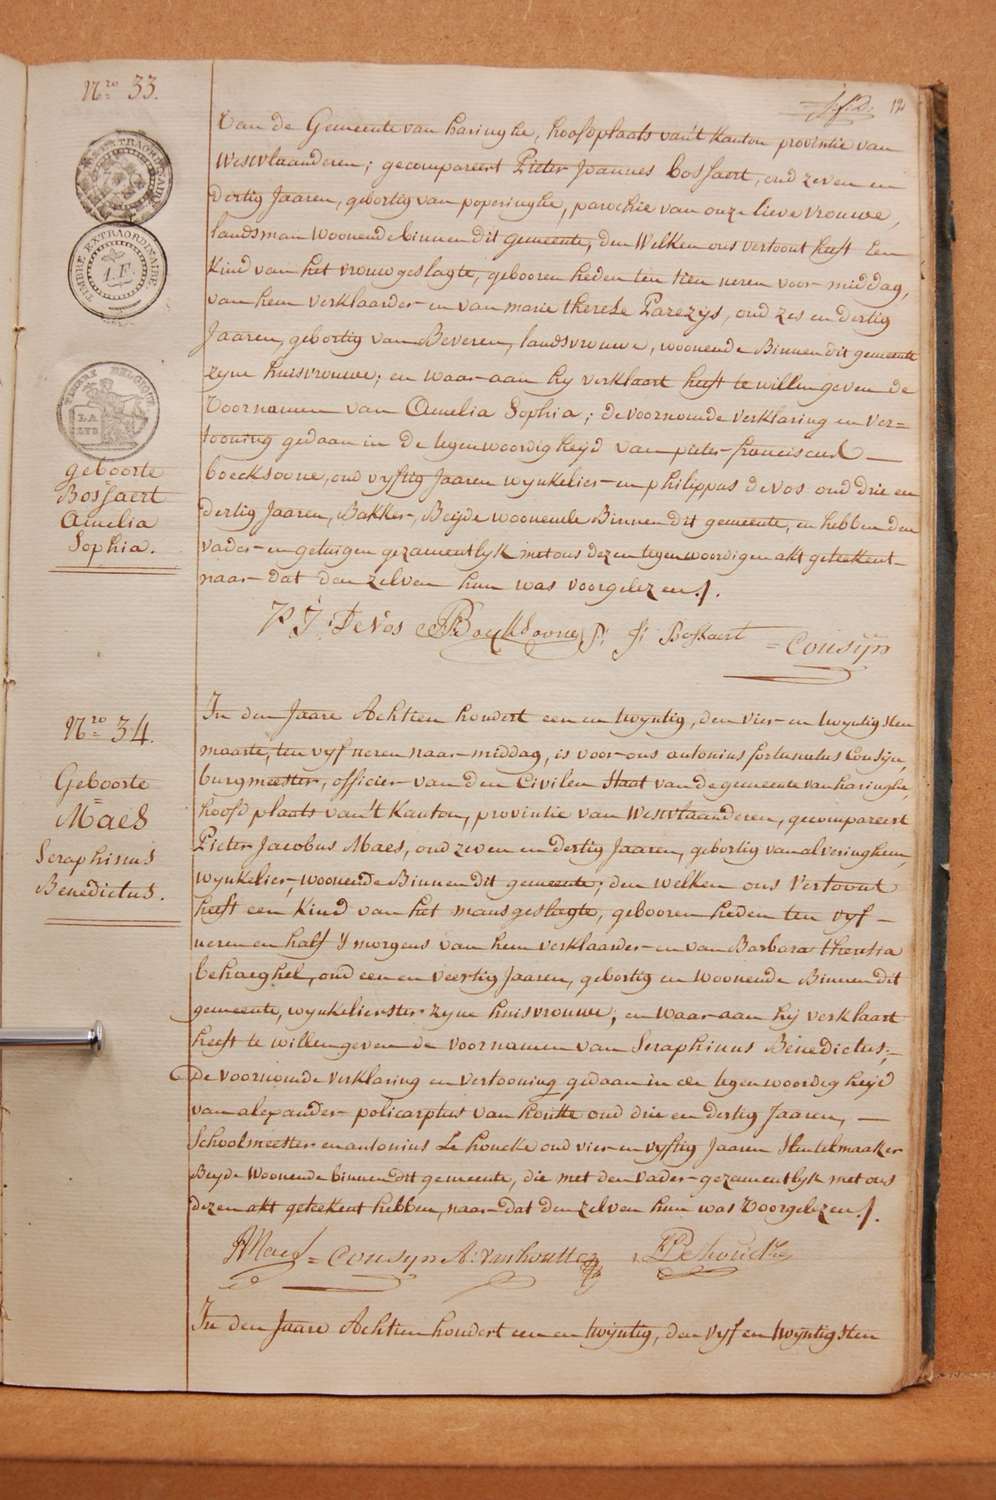 12
Nro 33.
TIMBRE EXTRAORDINAIRE.
1.F.
LA
LYS
geboorte
Bossaert
Amelia
Sophia.
Van de Gemeente van haringhe, hoofdplaats van't Kanton provintie van
Westvlaanderen; gecompareert Pieter Joannes Bossaert, oud zeven en
dertig Jaaren, gebortig van poperinghe, parochie van onze lieve vrouwe,
landsman woonende binnen dit gemeente, den Welken ons vertoont heeft Een
Kind van het vrouwgeslagte, gebooren heden ten tien ueren voor-middag,
van hem verklaarder en van marie therese Parezys, oud zes en dertig
Jaaren, gebortig van Beveren, landsvrouwe, woonende Binnen dit gemeente
zyne huisvrouwe; en waar-aan hy verklaart heeft te willen geven de
Voornamen van Amelia Sophia; de voornomde verklaring en ver=
tooning gedaan in de tegenwoordigheyd van pieter franciscus
boecksoone, oud vyftig Jaaren wynkelier en philippus devos oud drie en
dertig Jaaren, Bakker, Beijde woonende Binnen dit gemeente, en hebben den
vader en getuigen gezamentlyk met ons dezen tegenwoordigen akt geteekent
naar dat den zelven hun was voorgelezen./.
P J DeVos Boecksoone P: J: Bossaert = Cousÿn
Nro 34.
Geboorte
=
Maes
Seraphinus
Benedictus.
In den Jaare Achtien hondert een en twyntig, den vier en twyntigsten
maarte, ten vyf ueren naar-middag, is voor-ons antonius fortunatus Cousijn,
burgmeester, officier van den Civilen Staat van de gemeente van haringhe,
hoofdplaats van't Kanton, provintie van Westvlaanderen, gecompareert
Pieter Jacobus Maes, oud zeven en dertig Jaaren, gebortig van alveringhem,
wynkelier, woonende Binnen dit gemeente; den welken ons Vertoont
heeft een Kind van het mansgeslagte, gebooren heden ten vyf
ueren en half 's morgens van hem verklaarder en van Barbara theresia
behaeghel, oud een en veertig Jaaren, gebortig en Woonende Binnen dit
gemeente, wynkelierster zyne huisvrouwe, en Waar-aan hij verklaart
heeft te willen geven de voornamen van Seraphinus Benedictus;
De voornomde verklaring en vertooning gedaan in de tegenwoordigheÿd
van alexander policarptus van houtte oud drie en dertig Jaaren,
Schoolmeester en antonius Lehoucke oud vier en vyftig Jaaren Sleutelmaaker
Beijde Woonende binnen dit gemeente, die met den vader gezamentlyk met ons
dezen akt geteekent hebben, naar dat den zelven hun was Voorgelezen./.
PJMaes = Cousyn A: Vanhoutte Lehoucke
In den Jaare Achtien hondert een en twyntig, den vyf en twyntigsten